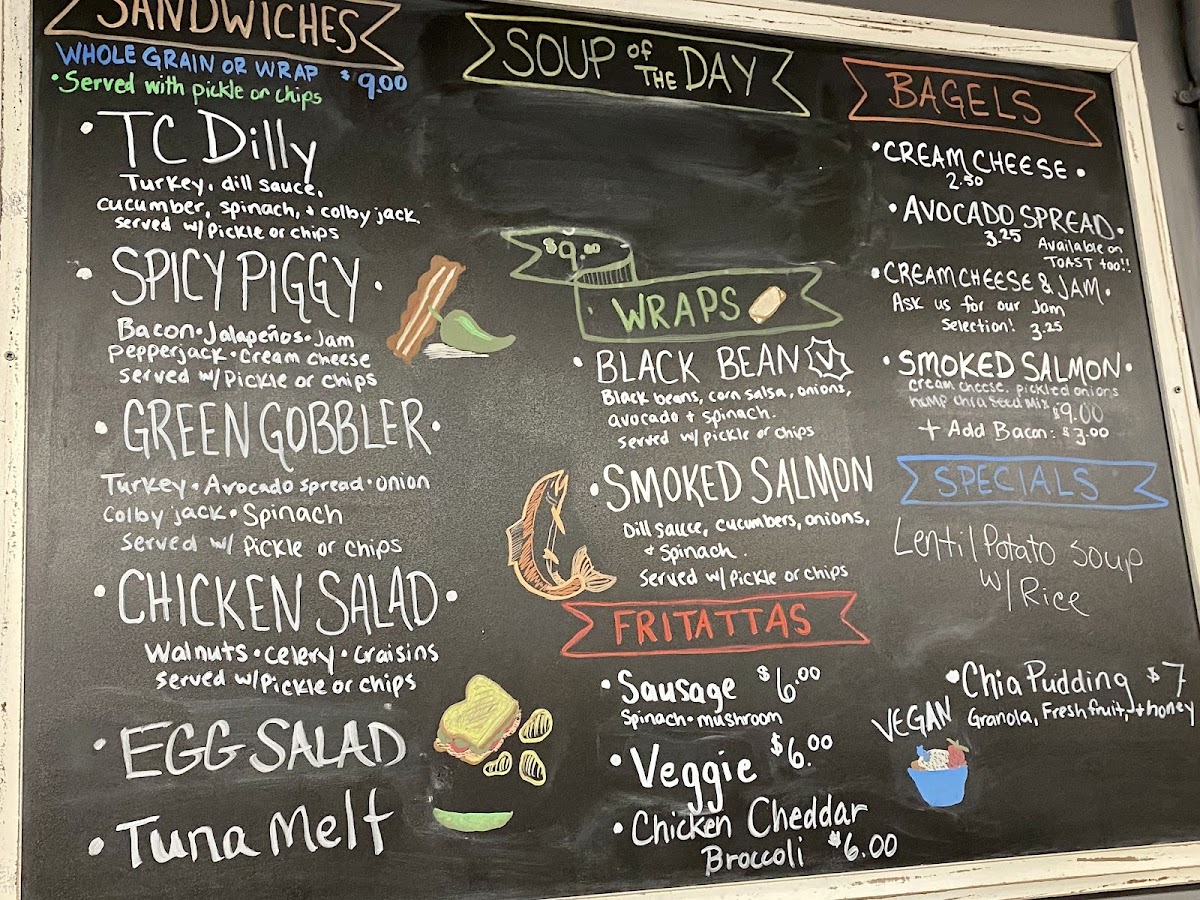 SANDWICHES
WHOLE GRAIN OR WRAP $9.00
• Served with pickle or chips
• TC Dilly
Turkey, dill sauce,
cucumber, spinach, + colby jack
served w/ Pickle or chips
• SPICY PIGGY •
Bacon • Jalapeños • Jam
pepperjack • cream cheese
served w/ Pickle or chips
• GREEN GOBBLER •
Turkey • Avocado spread • onion
Colby jack • Spinach
served w/ Pickle or chips
• CHICKEN SALAD •
Walnuts • celery • Craisins
served w/ Pickle or chips
• EGG SALAD
• Tuna Melt
SOUP of THE DAY
$9.00
WRAPS
• BLACK BEAN V
Black beans, corn salsa, onions,
avocado + spinach.
served w/ pickle or chips
• SMOKED SALMON
Dill sauce, cucumbers, onions,
+ Spinach.
served w/ Pickle or chips
FRITATTAS
• Sausage $6.00
Spinach • mushroom
• Veggie $6.00
• Chicken Cheddar
Broccoli $6.00
BAGELS
• CREAM CHEESE •
2.50
• AVOCADO SPREAD •
3.25 Available on
TOAST too!!
• CREAM CHEESE & JAM •
Ask us for our Jam
Selection! 3.25
• SMOKED SALMON •
cream cheese, pickled onions
hemp chia seed mix $9.00
+ Add Bacon: $3.00
SPECIALS
Lentil Potato Soup
w/ Rice
• Chia Pudding $7
VEGAN Granola, Fresh fruit, + honey